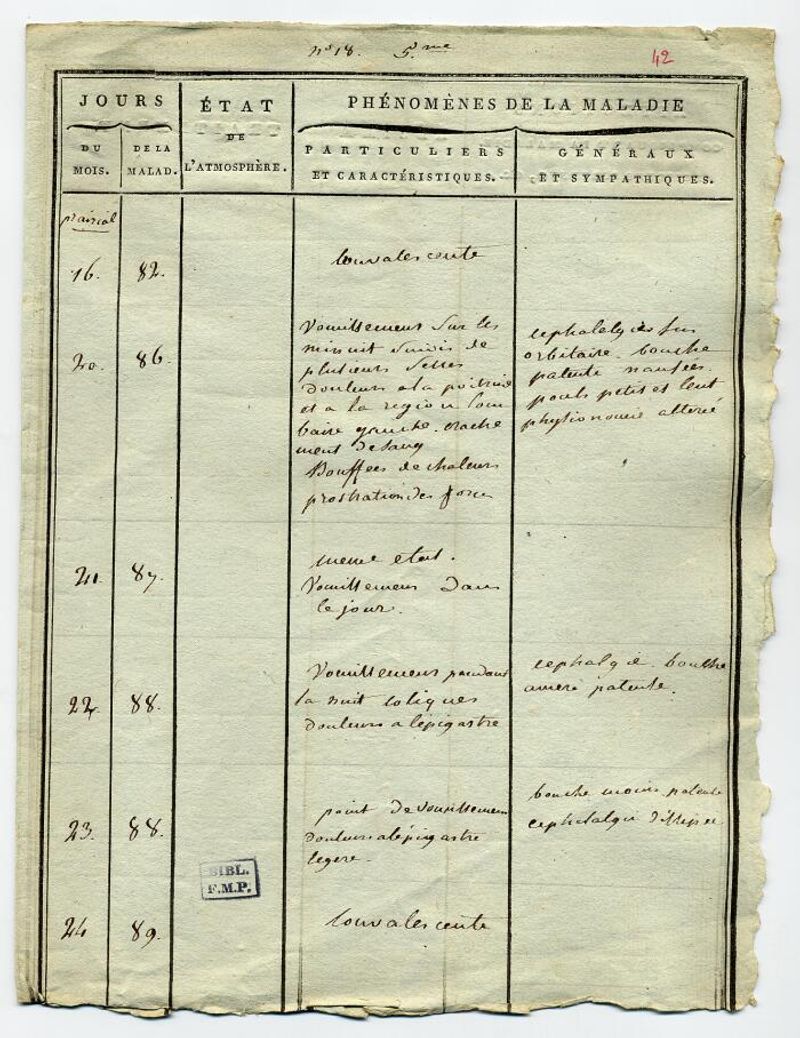 nº 18. 5.me
42
JOURS
ÉTAT
DE
L'ATMOSPHÈRE.
PHÉNOMÈNES DE LA MALADIE
DU
MOIS.
DE LA
MALAD.
PARTICULIERS
ET CARACTÉRISTIQUES.
GÉNÉRAUX
ET SYMPATHIQUES.
prairial
16. 82. Convalescente
20. 86.
Vomissemens sur les
minuit suivis de
plusieurs selles
douleurs a la poitrine
et a la region lom
baire gauche. crache
ment de sang
Bouffées de chaleurs
prostration des forces
cephalalgie sus
orbitaire. bouche
pateuse nausées.
pouls petit et lent
physionomie alterée
21. 87.
meme etat.
Vomissemens dans
le jour.
22. 88.
Vomissemens pendant
la nuit coliques
douleurs a l'épigastre
cephalgie. bouche
amere pateuse.
23. 88.
point de vomissemens
douleurs a l'épigastre
legere.
bouche moins pateuse
cephalalgie dissipée
BIBL.
F.M.P.
24 89. Convalescente